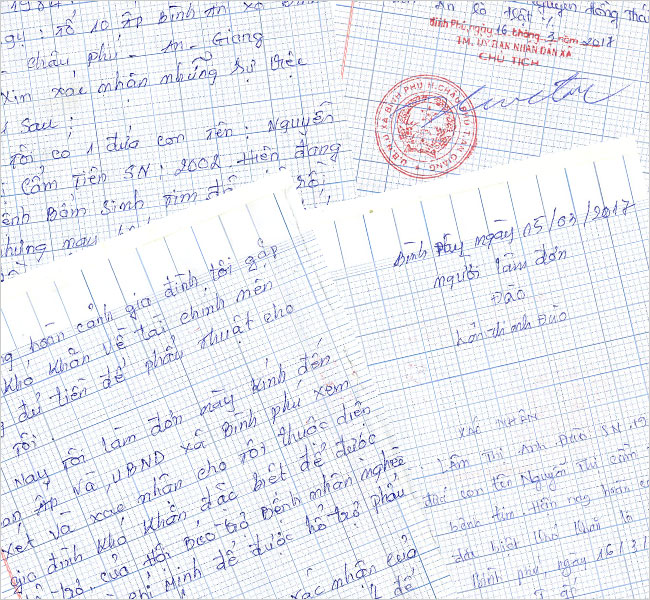 1984
Số 10 ấp Bình An xã
Châu Phú - An - Giang
Xin xác nhận những sự việc
Sau:
Tôi có 1 đứa con tên: Nguyễn
Cẩm Tiên SN: 2002 Hiện đang
bệnh Bẩm Sinh tim
nhưng nay
Nguyễn Hồng Thái
Bình Phú, ngày 16 tháng 3 năm 2017
TM. ỦY BAN NHÂN DÂN XÃ
CHỦ TỊCH
U.B.N.D XÃ BÌNH PHÚ H.CHÂU PHÚ T.AN GIANG
hoàn cảnh gia đình tôi gặp
khó khăn về tài chính nên
đủ tiền để phẩu thuật cho
Tôi.
Nay tôi làm đơn này kính đến
ấp và, UBND xã Bình phú xem
xét và xác nhận cho tôi thuộc diện
gia đình khó khăn đặc biệt để được
của Hội Bảo trợ Bệnh nhân nghèo
Minh để được hổ trợ phẩu
xác nhận của
để
Bình Phú ngày 15/03/2017
người làm đơn
Đào
Lâm thi anh Đào
XÁC NHẬN
Lâm Thị Anh Đào SN 19
con tên Nguyễn Thị Cẩm
bệnh tim hiện nay hoàn
đặc biệt khó khăn là
Bình phú, ngày 16/3/